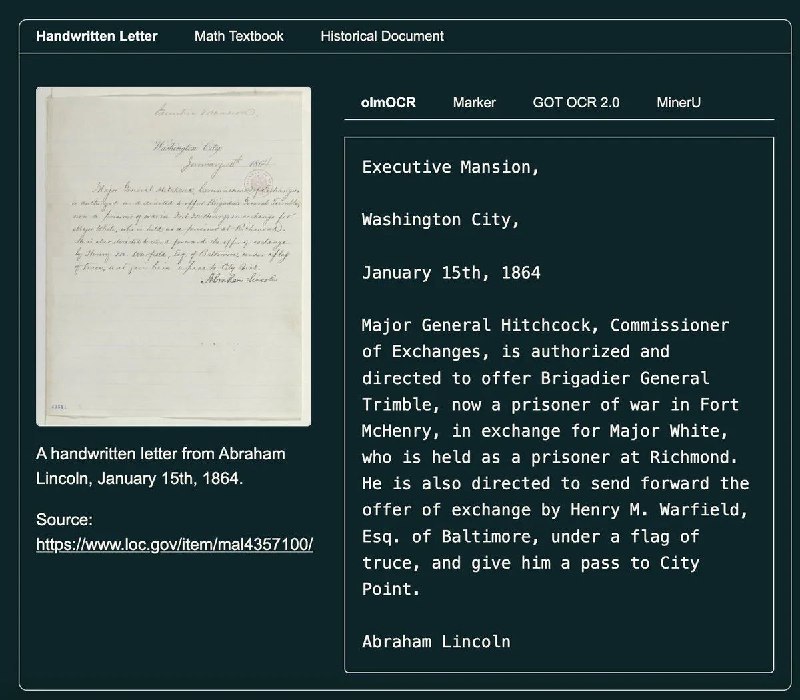 Handwritten Letter
Math Textbook
Historical Document
olmOCR
Marker
GOT OCR 2.0
MinerU
Executive Mansion,
Washington City,
January 15th, 1864
Major General Hitchcock, Commissioner
of Exchanges, is authorized and
directed to offer Brigadier General
Trimble, now a prisoner of war in Fort
McHenry, in exchange for Major White,
who is held as a prisoner at Richmond.
He is also directed to send forward the
offer of exchange by Henry M. Warfield,
Esq. of Baltimore, under a flag of
truce, and give him a pass to City
Point.
Abraham Lincoln
Washington City,
Abraham Lincoln
A handwritten letter from Abraham
Lincoln, January 15th, 1864.
Source:
https://www.loc.gov/item/mal4357100/